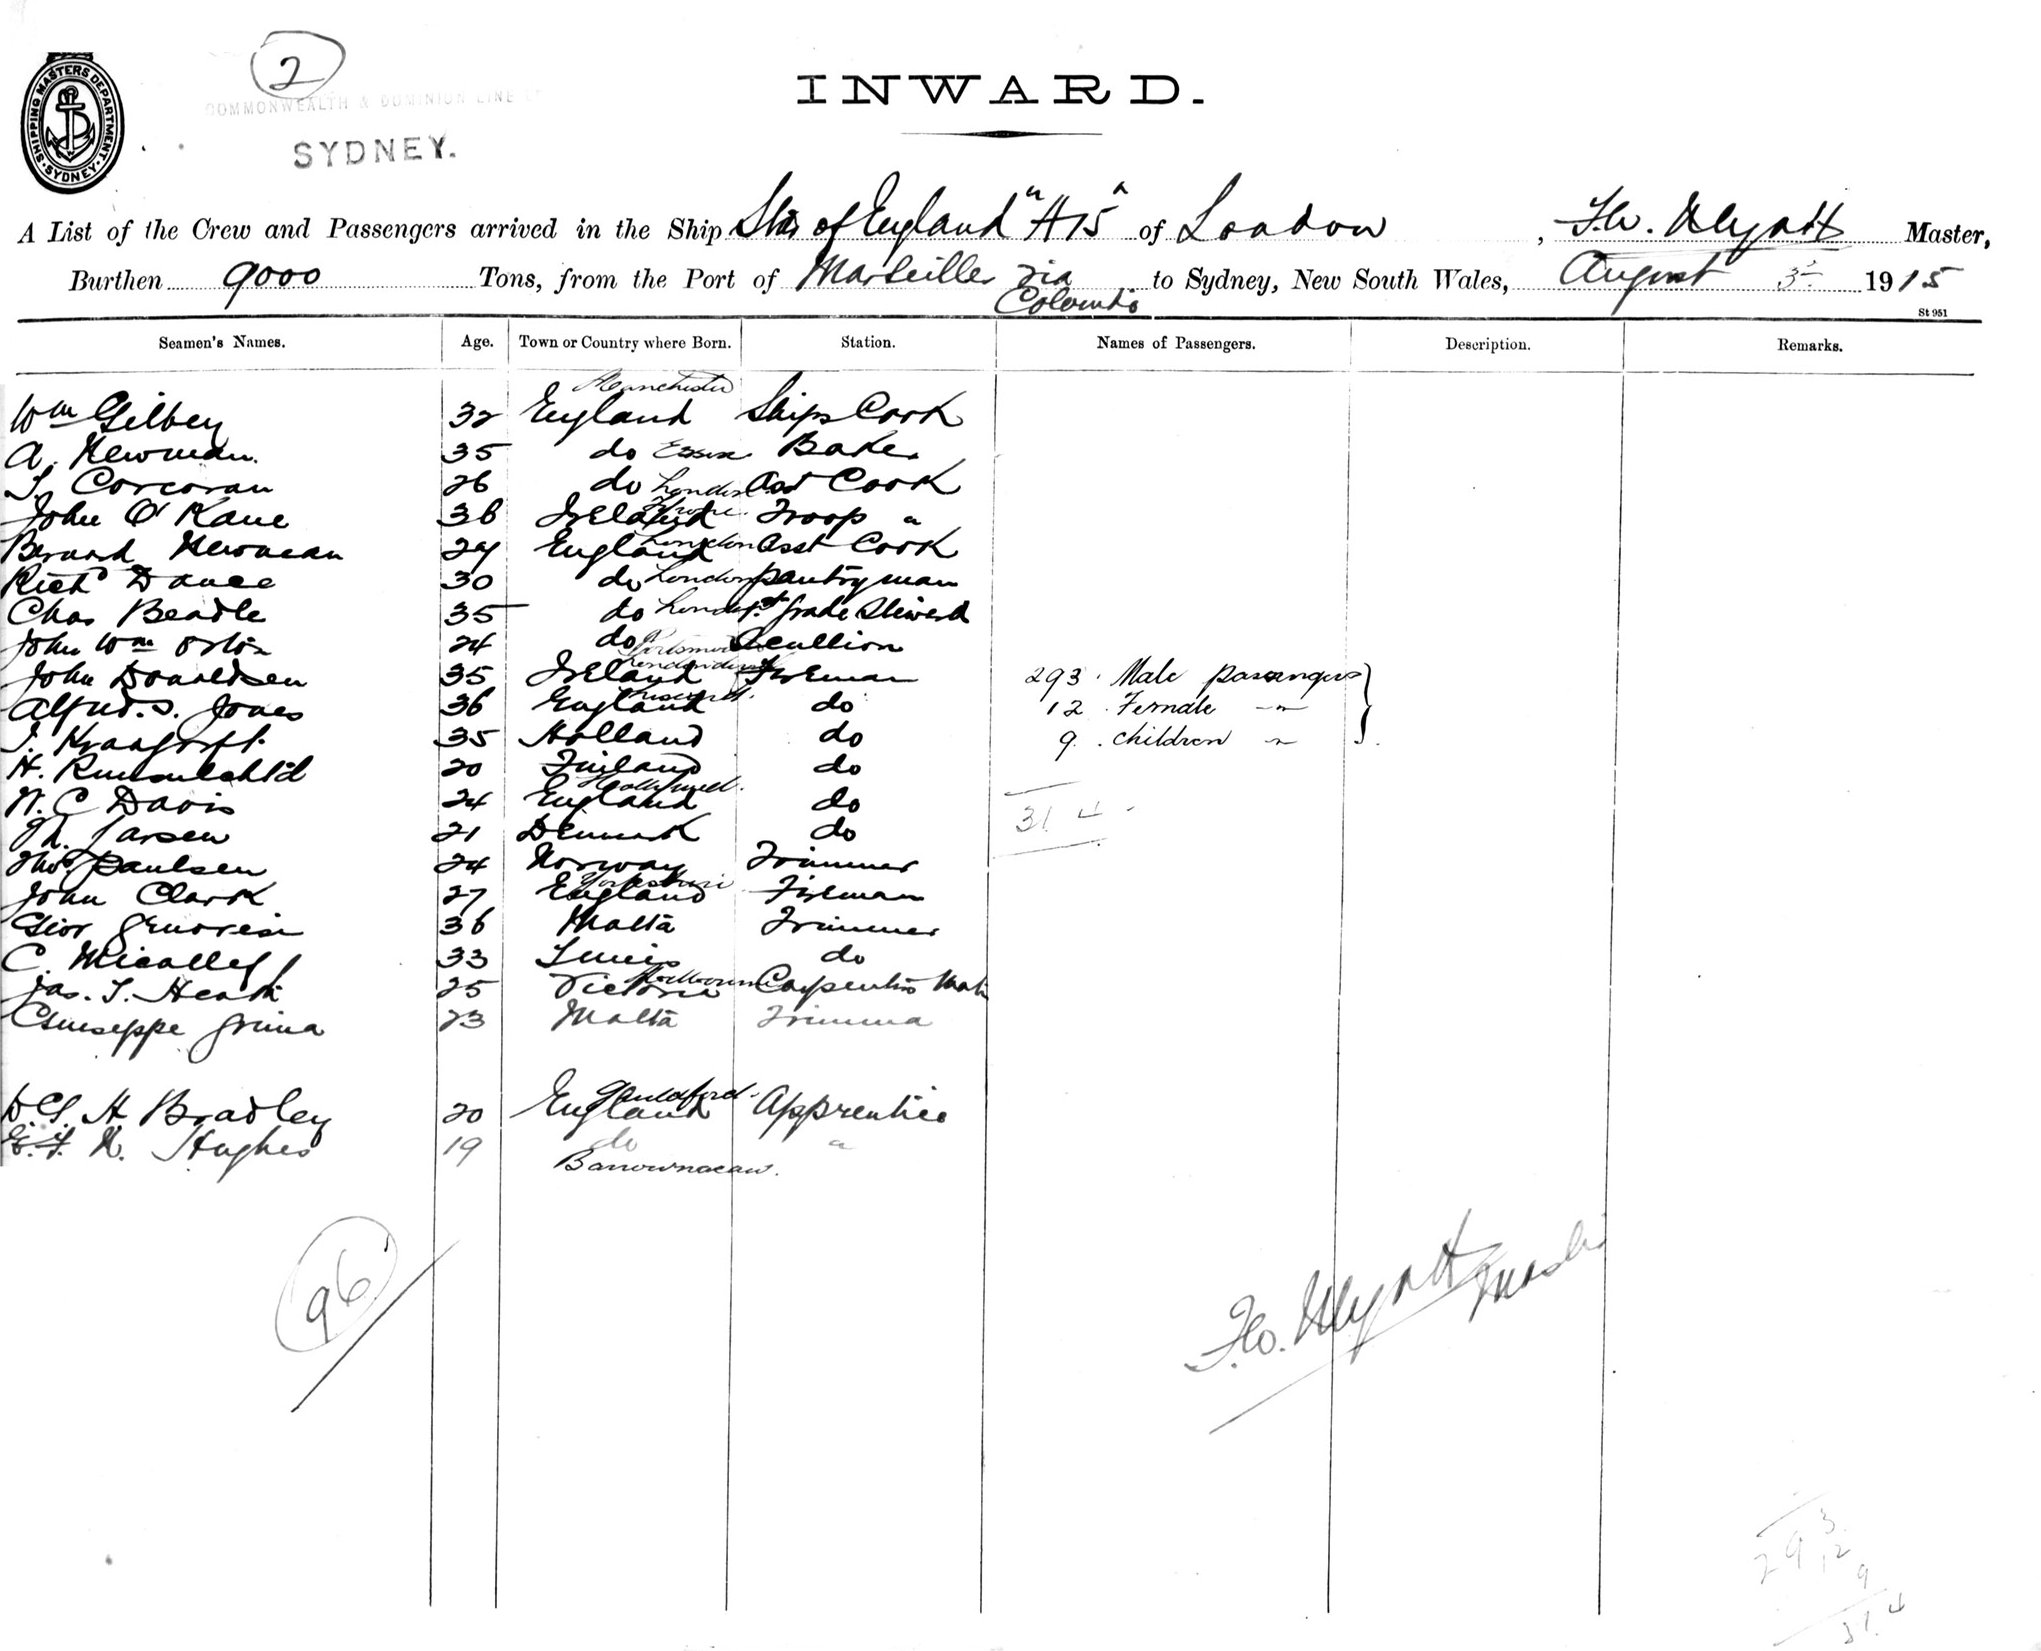 2
SHIPPING MASTERS DEPARTMENT. SYDNEY.
COMMONWEALTH & DOMINION LINE
SYDNEY.
INWARD.
A List of the Crew and Passengers arrived in the Ship Star of England "A15" of London, F.W. Wyatt Master,
Burthen 9000 Tons, from the Port of Marseilles via Colombo to Sydney, New South Wales, August 3rd 1915
St 951
Seamen's Names. Age. Town or Country where Born. Station. Names of Passengers. Description. Remarks.
Manchester
Wm Gilbey 32 England Ships Cook
A. Newman 35 do Essex Baker
T. Corcoran 26 do London Asst Cook
John O'Kane 36 Ireland Tyrone Troop "
Bernard Newman 29 England London Asst Cook
Richd Dance 30 do London pantryman
Chas Beadle 35 do London 1st Grade Steward
John Wm 24 do Portsmouth Scullion
John Donaldsen 35 Ireland Londonderry Fireman 293 Male passengers
Alfred. S. Jones 36 England do 12 Female "
35 Holland do 9. children "
H. 20 Finland do
Hollywell
N. C Davis 24 England do 314
Larsen 21 Denmark do
Thos Paulsen 24 Norway Trimmer
Yorkshire
John Clark 27 England Fireman
Gior Genovesi 36 Malta Trimmer
C. Micallef 33 do
Jas. T. Heath 25 Victoria Melbourne Carpenters Mate
Giuseppe Grima 23 Malta Trimmer
Guildford
H Bradley 20 England Apprentice
Hughes 19 do "
96
F.W. Wyatt Master
293
12
9
314